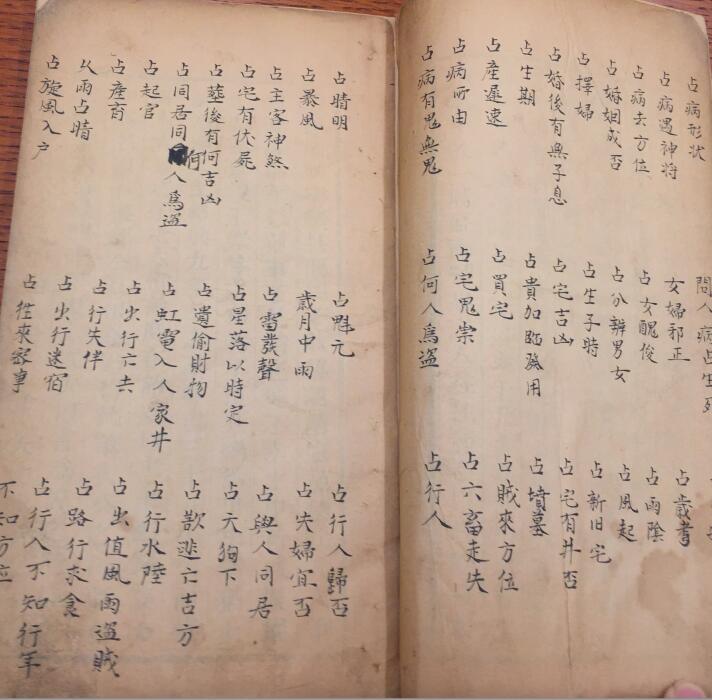 占病形状
占病遇神将
占病去方位
占婚姻成否
占擇婦
占婚後有無子息
占生期
占產遲速
占病所由
占病有鬼無鬼
問人病占生死
女婦邪正
占女醜俊
占分辨男女
占生子時
占宅吉凶
占貴加臨發用
占買宅
占宅鬼祟
占何人為盗
占歲
占雨陰
占風起
占新旧宅
占宅有井否
占墳墓
占賊來方位
占六畜走失
占行人
占晴明
占暴風
占主客神煞
占宅有伏屍
占葬後有何吉凶
占同居同有人為盗
占起官
占產育
久雨占晴
占旋風入户
占魁元
歲月中雨
占雷發聲
占星落以時定
占遺偷財物
占虹電入人家井
占出行亡去
占行失伴
占出行遠宿
占往來家事
占行人歸否
占夫婦宜否
占與人同居
占天狗下
占歎逃亡吉方
占行水陸
占出值風雨盗賊
占路行求食
占行人不知行年
不知方位